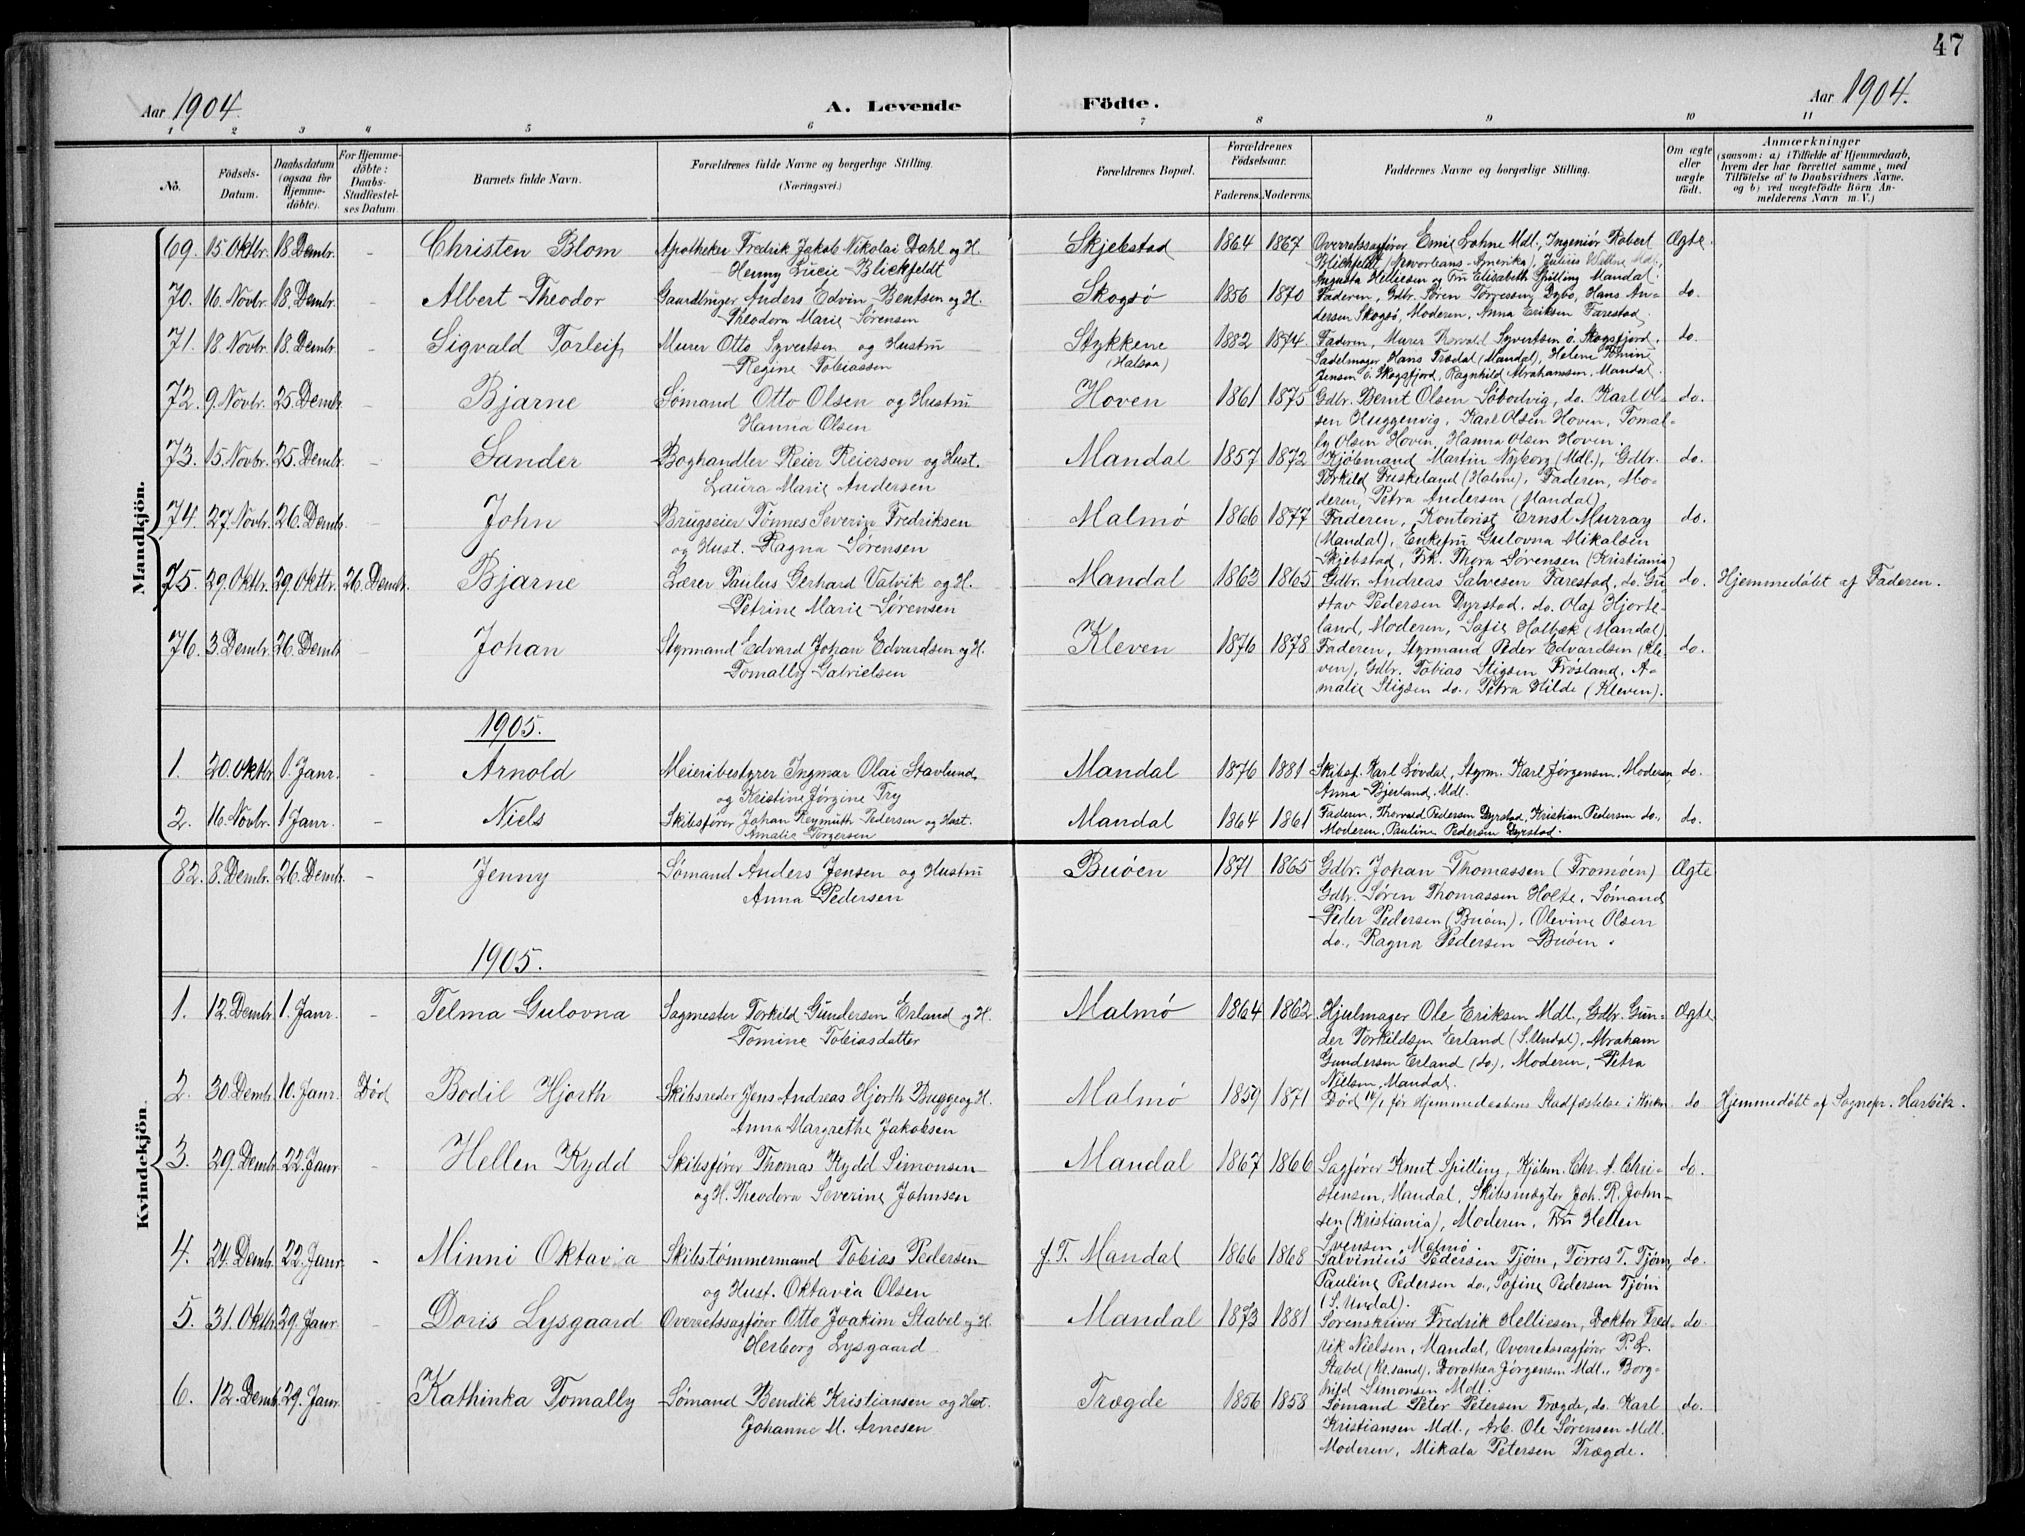 47
Aar 1904. A. Levende Födte. Aar 1904.
1 2 3 4 5 6 7 8 9 10 11
No. Födsels-Datum. Daabsdatum (ogsaa för Hjemme-döbte). For Hjemme-döbte: Daabs-Stadfæstel-ses Datum. Barnets fulde Navn. Forældrenes fulde Navne og borgerlige Stilling. (Næringsvei.) Forældrenes Bopæl. Forældrenes Födselsaar. Faderens. Moderens. Faddernes Navne og borgerlige Stilling. Om ægte eller uægte födt. Anmærkninger
(saasom: a) i Tilfælde af Hjemmedaab, hvem der har forrettet samme, med Tilföielse af to Daabsvidners Navne. og b) ved uægtefödte Börn An-melderens Navn m. V.)
Mandkjön.
69. 15. Oktbr. 18. Dembr. - Christen Blom Apotheker Fredrik Jakob Nikolai Dahl og H. Skjebstad 1864 1867 Overretssagfører Emil Lohne Mdl., Ingeniør Robert Ægte.
Henny Lucie Blickfeldt Blickfeldt (Neworleans-Amerika), Julius Mdl.
Augusta Helliesen og Fru Elisabeth Spilling Mandal.
70. 16. Novbr. 18. Dembr. - Albert Theodor Gaardbruger Anders Edvin Bentsen og H. Skogsø 1856 1870 Faderen, Gdbr. Søren Torressen Dybo, Hans An- do.
Theodora Marie Sørensen dersen Skogsø, Moderen, Anna Eriksen Farestad.
71. 18. Novbr. 18. Dembr. - Sigvald Torleif Murer Otto Syvertsen og Hustru Stykkene 1882 1874 Faderen, Murer Torvald Syvertsen ø. Skogsfjord, do.
Regine Tobiassen (Halsaa) Sadelmager Hans Trædal (Mandal), Helene Tomin
Jensen ø. Skogsfjord, Ragnhild Abrahamsen, Mandal.
72. 9. Novbr. 25. Dembr. - Bjarne Sømand Otto Olsen og Hustru Hoven 1861 1875 Gdbr. Bernt Olsen Søbodvig, do. Karl Ol- do.
Hanna Olsen sen Huggenvig, Karl Olsen Hoven, Tomal-
ly Olsen Hoven, Hanna Olsen Hoven.
73. 15. Novbr. 25. Dembr. - Sander Boghandler Reier Reierson og Hust. Mandal 1857 1872 Kjøbmand Martin Nyborg (Mdl.), Gdbr. do.
Laura Marie Andersen Torkild Fuskeland (Halme), Faderen, Mo-
deren, Petra Andersen (Mandal)
74. 27. Novbr. 26. Dembr. - John Brugseier Tønnes Severin Fredriksen Malmø 1866 1877 Faderen, Kontorist Ernst Murray do.
og Hust. Ragna Sørensen (Mandal), Enkefru Gulovna Mikalsen
Skjebstad, Frk. Thora Sørensen (Kristiania)
75. 29. Oktbr. 29. Oktbr. 26. Dembr. Bjarne Lærer Paulus Gerhard Valvik og H. Mandal 1863 1865 Gdbr. Andreas Salvesen Farestad, do. Gu- do. Hjemmedøbt af Faderen.
Petrine Marie Sørensen stav Pedersen Dyrstad, do. Olaf Hjorte-
land, Moderen, Sofie Holbæk (Mandal).
76. 3. Dembr. 26. Dembr. - Johan Styrmand Edvard Johan Edvardsen og H. Kleven 1876 1878 Faderen, Styrmand Peder Edvardsen (Kle- do.
Tomally Gabrielsen ven), Gdbr. Tobias Stigsen Frøsland, A-
malie Stigsen do., Petra Hilde (Kleven).
1905.
1. 20. Oktbr. 1. Janr. - Arnold Meieribestyrer Ingmar Olai Stavlund Mandal 1876 1881 Skibsf. Karl Løvdal, Styrm. Karl Jørgensen, Moderen, do.
og Kristine Jørgine Try Anna Bjerland, Mdl.
2. 16. Novbr. 1 Janr. - Niels Skibsfører Johan Reymuth Pedersen og Hust. Mandal 1864 1861 Faderen, Thorvald Pedersen Dyrstad, Kristian Pedersen do., do.
Amalie Torgersen Moderen, Pauline Pedersen Dyrstad.
Kvindekjön.
82. 8. Dembr. 26. Dembr. - Jenny Sømand Anders Jensen og Hustru Buøen 1871 1865 Gdbr. Johan Thomassen (Tromøen) Ægte
Anna Pedersen Gdbr. Søren Thomassen Holte, Sømand
Peder Pedersen (Buøen), Olevine Olsen
do., Ragna Pedersen Buøen.
1905.
1. 12. Dembr. 1. Janr. - Telma Gulovna Sagmester Torkild Gundersen Erland og H. Malmø 1864 1862 Hjulmager Ole Eriksen Mdl., Gdbr. Gun- Ægte
Tomine Tobiasdatter der Torkildsen Erland (S. Undal), Abraham
Gundersen Erland (do), Moderen, Petra
Nielsen, Mandal.
2. 30. Dembr. 10. Janr. Død Bodil Hjorth Skibsreder Jens Andreas Hjorth Bugge og H. Malmø 1859 1871 Død 11/1 før Hjemmedaabens Stadfæstelse i Kirken do. Hjemmedøbt af Sognepr. Harbik.
Anna Margrethe Jakobsen
3. 29. Dembr. 22. Janr. - Hellen Kydd Skibsfører Thomas Kydd Simonsen Mandal 1867 1866 Sagfører Knut Spilling, Kjøbm. Chr. A. Chri- do.
og H. Theodora Severine Johnsen stensen, Mandal, Skibsmægler Joh. R. John-
sen (Kristiania), Moderen, Fru Hellen
Svensen, Malmø.
4. 24. Dembr. 22. Janr. - Minni Oktavia Skibstømmermand Tobias Pedersen f. T. Mandal 1866 1868 Salvinius Pedersen Tjøm, Tørres T. Tjøm, do.
og Hust. Oktavia Olsen Pauline Pedersen do., Sofine Pedersen Tjøm
(S. Undal).
5. 31. Oktbr. 29. Janr. - Doris Lysgaard Overretssagfører Otto Joakim Stabel og H. Mandal 1873 1881 Sorenskriver Fredrik Helliesen, Doktor Fred- do.
Herborg Lysgaard rik Nielsen, Mandal, Overretssagfører P. L.
Stabel (Kr.sand), Dorothea Jørgensen Mdl., Borg-
hild Simonsen Mdl.
6. 12. Dembr. 29. Janr. Kathinka Tomally Sømand Bendik Kristiansen og Hust. Trægde 1856 1858 Sømand Peter Petersen Trægde, do. Karl do.
Johanne M. Arnesen Kristiansen Mdl., Arb. Ole Sørensen Mdl.
Moderen, Mikala Petersen Trægde.